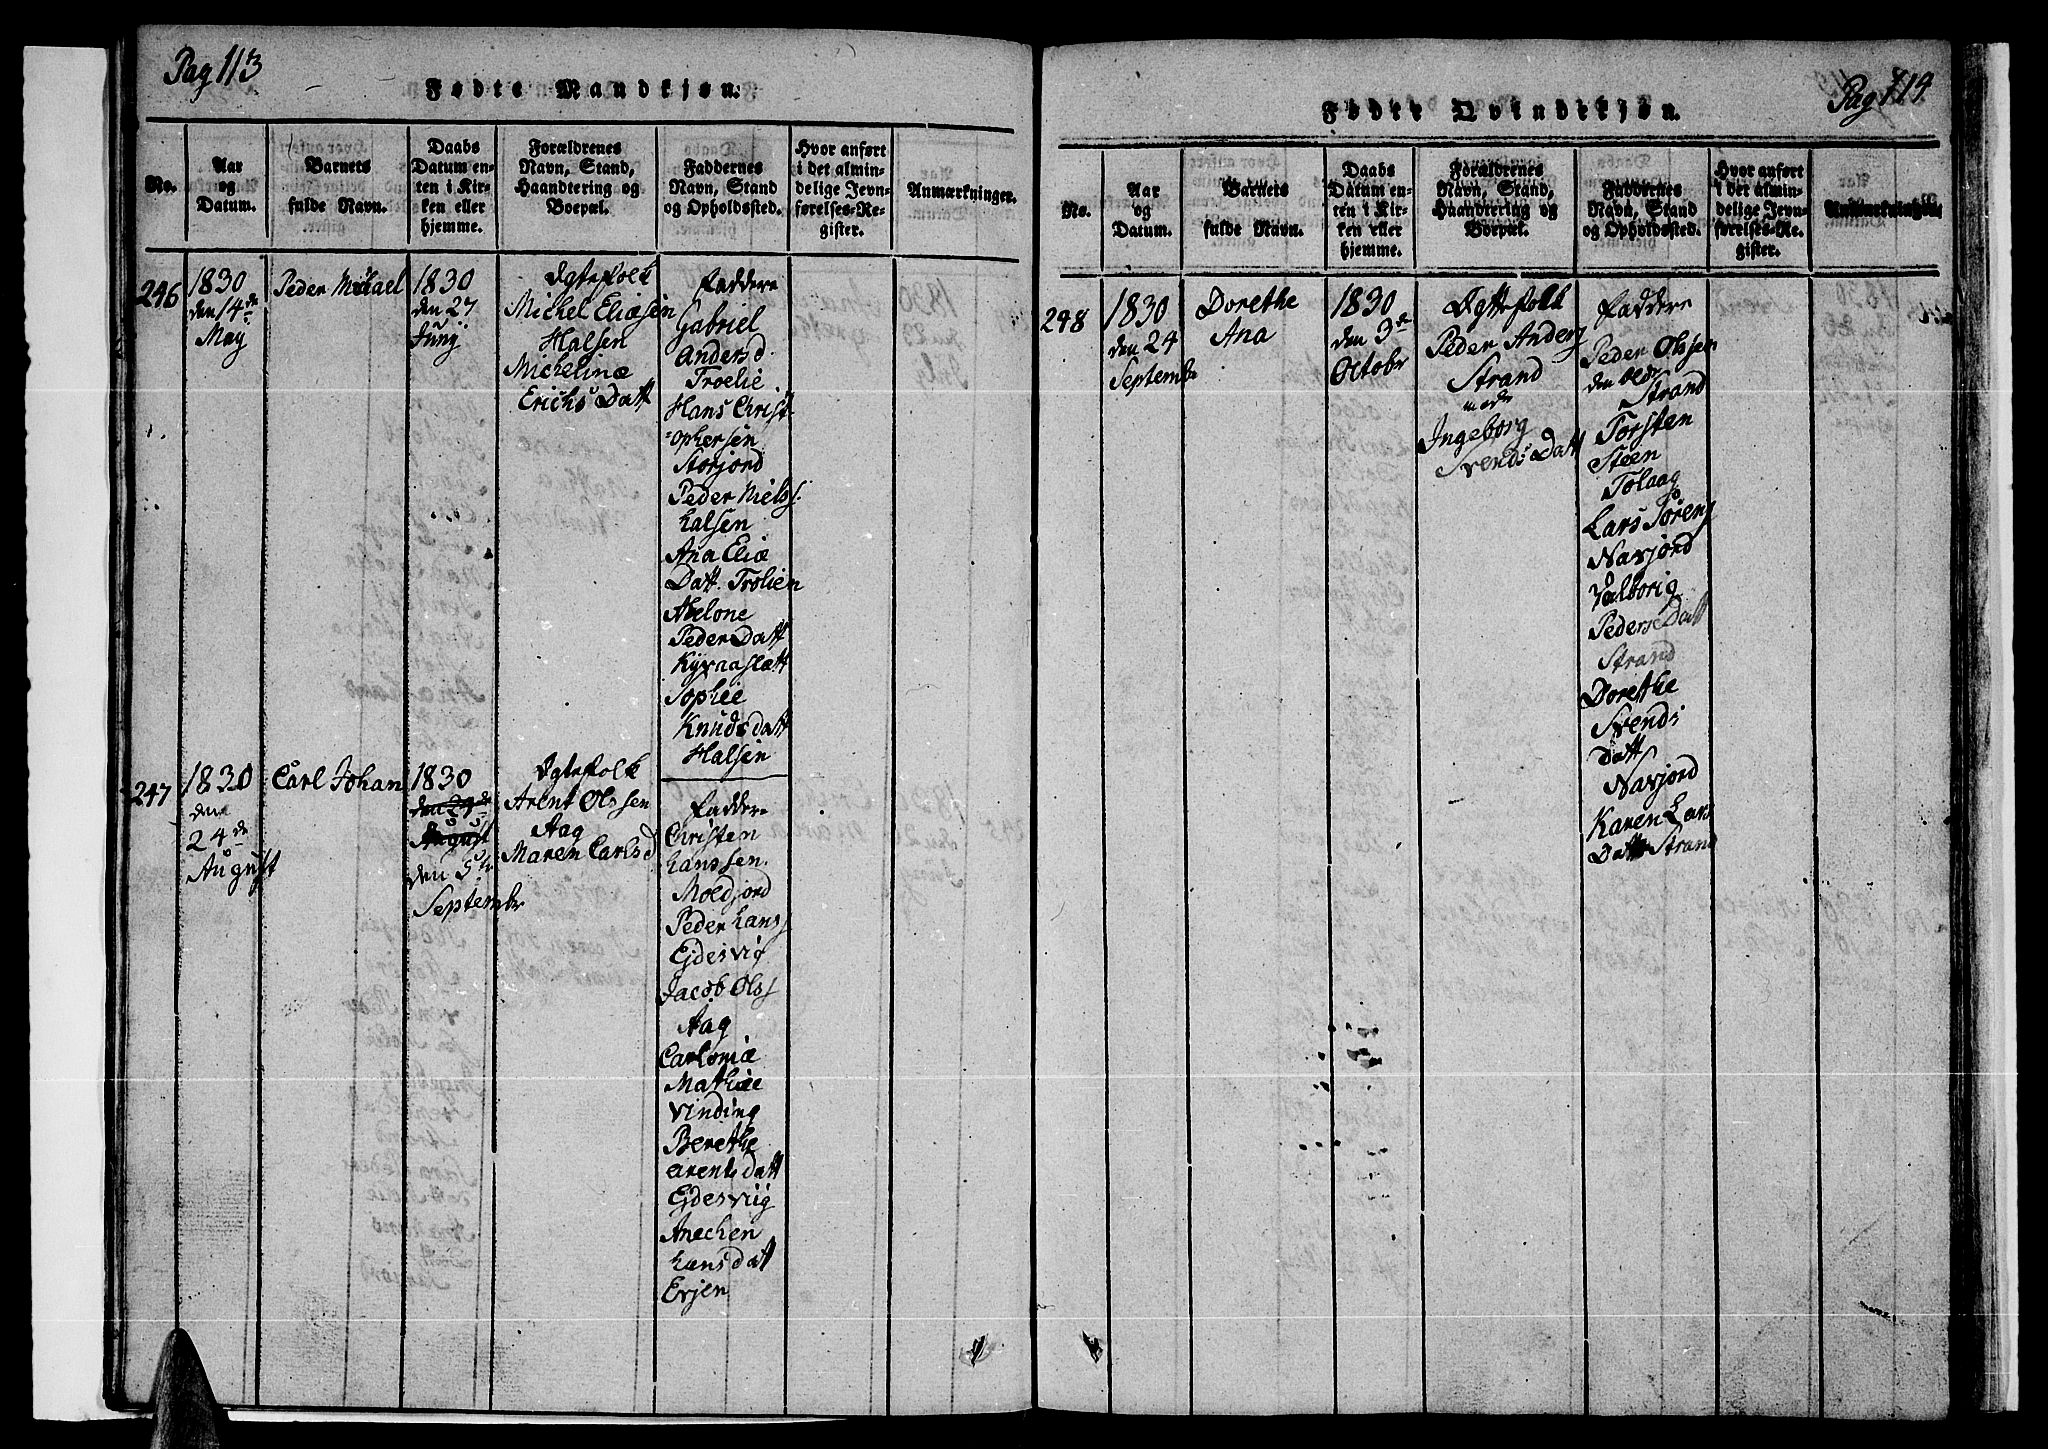 Pag 113
Fødte Mandkjøn.
No.
Aar
og
Datum.
Barnets
fulde Navn.
Daabs
Datum en-
ten i Kir-
ken eller
hjemme.
Forældrenes
Navn, Stand,
Haandtering og
Boepæl.
Faddernes
Navn, Stand
og Opholdssted.
Hvor anført
i det almin-
delige Jevn-
førelses-Re-
gister.
Anmærkninger.
246
1830
den 14de
May
Peder Michael
1830
den 27
Junij
Ægtefolk
Michel Eliæsen
Halsen
Michelinæ
Erichs Datt
Faddere
Gabriel
Andersd
Troelie
Hans Christ
=ophersen
Storjord
Peder Nielss.
Halsen
Ana Eliæ
Datt. Trolien
Abelone
Peder Datt
Kÿvaaslætt
Sophie
Knudsdatt
Halsen
247
1830
den
24de
August
Carl Johan
1830
den 29de
August
den 5te
Septembr
Ægtefolk
Arent Olssen
Aag
Maren Carlsd
Faddere
Christen
Hanssen
Moldjord
Peder Hanss
Ejdesvig
Jacob Olss
Aag
Carlomæ
Mathiæ
Vinding
Berethe
arentsdatt
Ejdesviig
Anechen
Hansdatt
Evjen
Pag 114
Fødte Qvindekjøn.
No.
Aar
og
Datum.
Barnets
fulde Navn.
Daabs
Datum en-
ten i Kir-
ken eller
hjemme.
Forældrenes
Navn, Stand,
Haandtering og
Boepæl.
Faddernes
Navn, Stand
og Opholdssted.
Hvor anført
i det almin-
delige Jevn-
førelses-Re-
gister.
Anmærkninger.
248
1830
den 24
Septembr
Dorethe
Ana
1830
den 3de
Octobr
Ægtefolk
Peder Anders
Strand
Ingeborg
Svends Datt
Faddere
Peder Olssen
den Oldr
Strand
Torsten
Steen
Tolaag
Lars Sørens
Navjord
Valborig
Peders Datt
Strand
Dorethe
Svends
Datt
Navjord
Karen Lars
Datt Strand